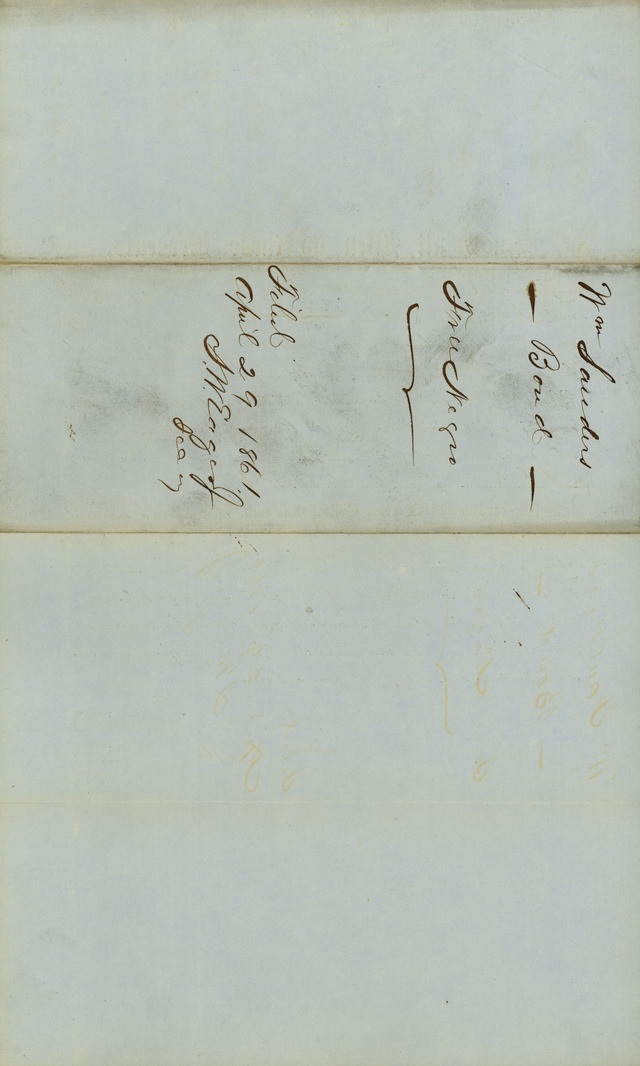 Wm Sanders
— Bond —
Free Negro
Filed
April 29 1861
S. W. Eager Jr